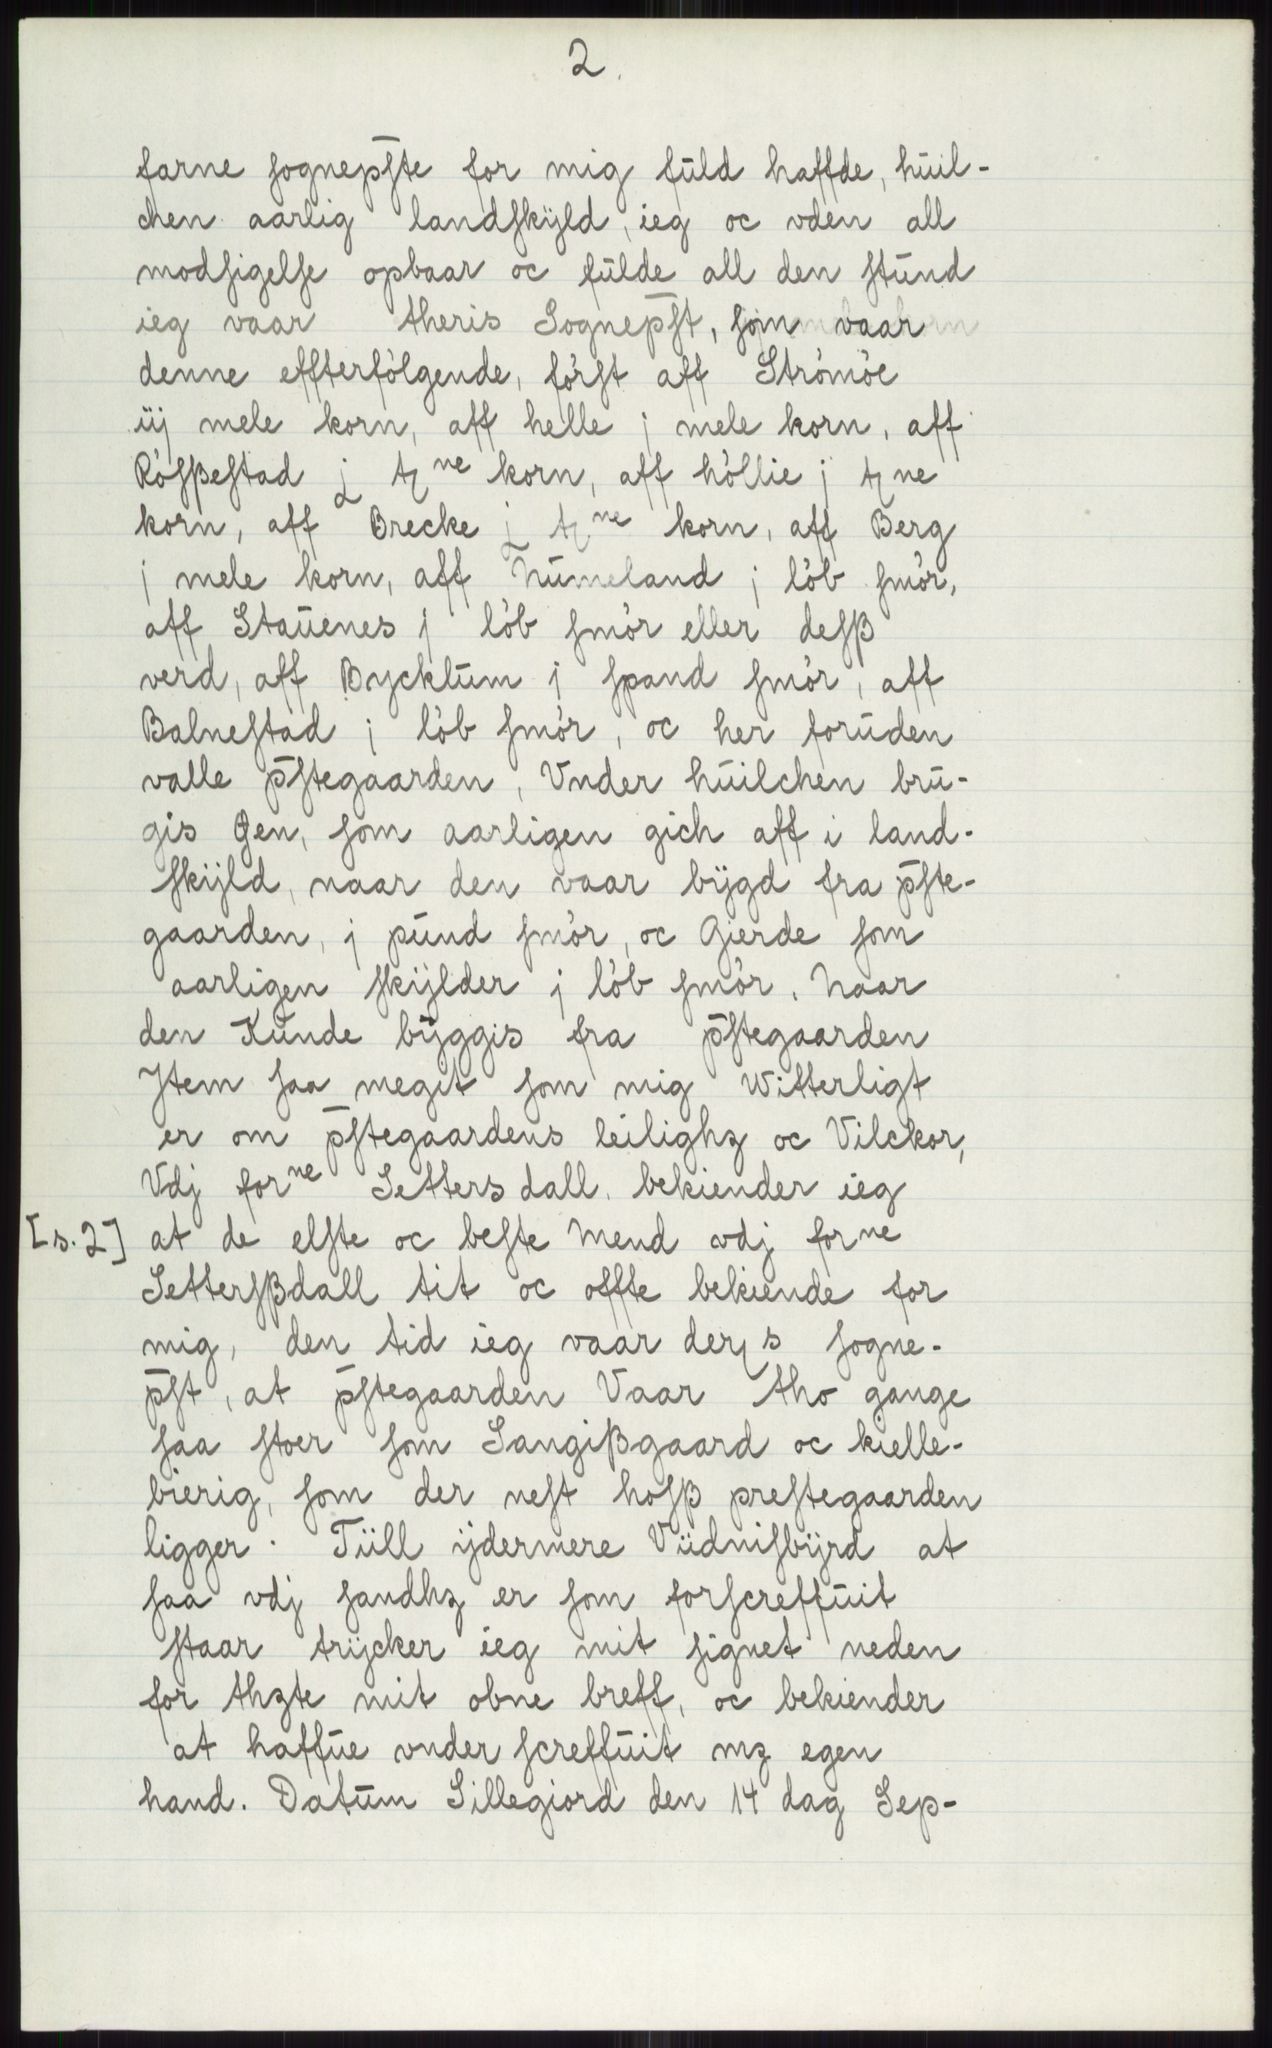 2.
farne sognepſte for mig fuld haffde, huil-
chen aarlig landſkyld, ieg oc vden all
modſigelſe opbaar oc fulde all den ſtund
ieg vaar theris Sognepſt, ſom vaar
denne effterfölgende, förſt aff Strömöe
iij mele korn, aff helle j mele korn, aff
Röſßeſtad j tne korn, aff höllie j tne
korn, aff Brecke j tne korn, aff Berg
j mele korn, aff Numeland j löb ſmör,
aff Stauenes j löb ſmör eller deſß
verd, aff Bycklum j ſpand ſmör, aff
Balneſtad j löb ſmör, oc her foruden
valle pſtegaarden, Vnder huilchen bru-
gis Øen, ſom aarligen gich aff i land-
ſkyld, naar den vaar bygd fra pſte-
gaarden, j pund ſmör, oc Gierde ſom
aarligen ſkylder j löb ſmör. Naar
den Kunde byggis fra pſtegaarden
Jtem ſaa megit ſom mig Witterligt
er om pſtegaardens leilighꝫ oc Vilckor,
Vdj forne Settersdall. bekiender ieg
[s. 2] at de elſte oc beſte Mend vdj forne
Setterſßdall tit oc offte bekiende for
mig, den tid ieg vaar ders ſogne-
pſt, at pſtegaarden Vaar tho gange
ſaa ſtoer ſom Sangißgaard oc kielle-
bierig, ſom der neſt hoſß preſtegaarden
ligger. Tiill ydermere Viidniſbyrd at
ſaa vdj ſandhꝫ er ſom forſcreffuit
ſtaar trycker ieg mit ſignet neden
for thꝫte mit obne breff, oc bekiender
at haffue vnder ſcreffuit mꝫ egen
hand. Datum Sillegiord den 14 dag Sep-